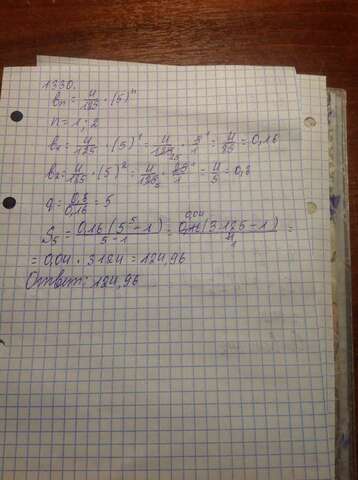 1330.
bn = 4/125 · (5)^n
n = 1; 2
b₁ = 4/125 · (5)¹ = 4/125 25 · 5/1 1 = 4/25 = 0,16
b₂ = 4/125 · (5)² = 4/125 5 · 25/1 1 = 4/5 = 0,8
q = 0,8/0,16 = 5
S₅ = 0,16(5⁵ - 1)/5 - 1 = 0,04 0,16(3125 - 1)/4 1 =
= 0,04 · 3124 = 124,96
Ответ: 124,96